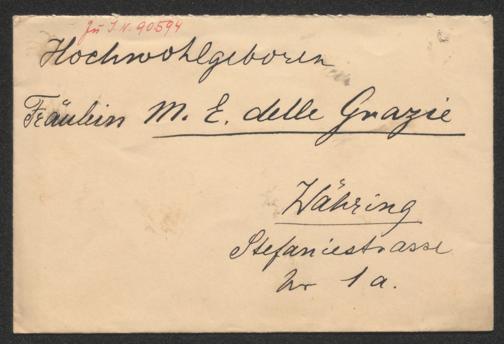 Zu I.N. 90594
Hochwohlgeboren
Fräulein M. E. delle Grazie
Währing
Stefaniestrasse
Nr 1a.